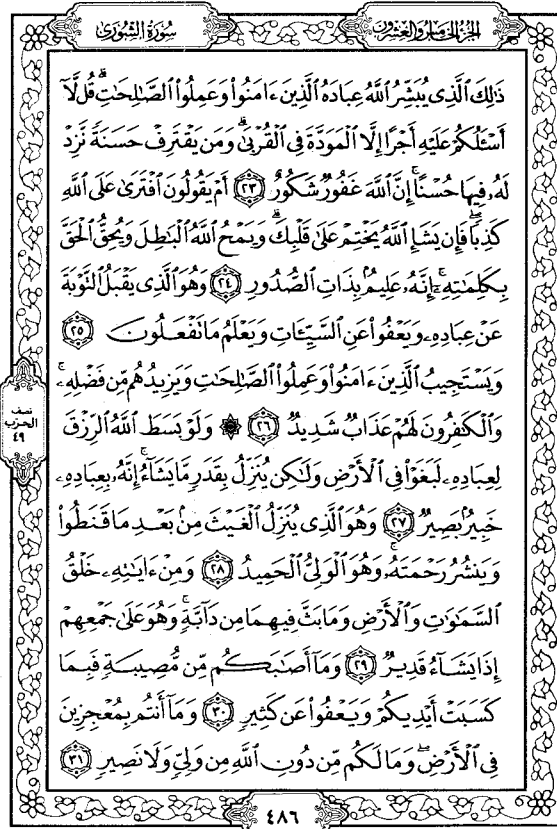 سُورَةُ الشُّورَىٰ
الجُزْءُ الخَامِسُ وَالعِشْرُونَ
ذَٰلِكَ ٱلَّذِى يُبَشِّرُ ٱللَّهُ عِبَادَهُ ٱلَّذِينَ ءَامَنُوا۟ وَعَمِلُوا۟ ٱلصَّٰلِحَٰتِ ۗ قُل لَّآ
أَسْـَٔلُكُمْ عَلَيْهِ أَجْرًا إِلَّا ٱلْمَوَدَّةَ فِى ٱلْقُرْبَىٰ ۗ وَمَن يَقْتَرِفْ حَسَنَةً نَّزِدْ
لَهُۥ فِيهَا حُسْنًا ۚ إِنَّ ٱللَّهَ غَفُورٌ شَكُورٌ ٢٣ أَمْ يَقُولُونَ ٱفْتَرَىٰ عَلَى ٱللَّهِ
كَذِبًا ۖ فَإِن يَشَإِ ٱللَّهُ يَخْتِمْ عَلَىٰ قَلْبِكَ ۗ وَيَمْحُ ٱللَّهُ ٱلْبَٰطِلَ وَيُحِقُّ ٱلْحَقَّ
بِكَلِمَٰتِهِۦٓ ۚ إِنَّهُۥ عَلِيمٌۢ بِذَاتِ ٱلصُّدُورِ ٢٤ وَهُوَ ٱلَّذِى يَقْبَلُ ٱلتَّوْبَةَ
عَنْ عِبَادِهِۦ وَيَعْفُوا۟ عَنِ ٱلسَّيِّـَٔاتِ وَيَعْلَمُ مَا تَفْعَلُونَ ٢٥
وَيَسْتَجِيبُ ٱلَّذِينَ ءَامَنُوا۟ وَعَمِلُوا۟ ٱلصَّٰلِحَٰتِ وَيَزِيدُهُم مِّن فَضْلِهِۦ ۚ
وَٱلْكَٰفِرُونَ لَهُمْ عَذَابٌ شَدِيدٌ ٢٦ ۞ وَلَوْ بَسَطَ ٱللَّهُ ٱلرِّزْقَ
لِعِبَادِهِۦ لَبَغَوْا۟ فِى ٱلْأَرْضِ وَلَٰكِن يُنَزِّلُ بِقَدَرٍ مَّا يَشَآءُ ۚ إِنَّهُۥ بِعِبَادِهِۦ
خَبِيرٌۢ بَصِيرٌ ٢٧ وَهُوَ ٱلَّذِى يُنَزِّلُ ٱلْغَيْثَ مِنۢ بَعْدِ مَا قَنَطُوا۟
وَيَنشُرُ رَحْمَتَهُۥ ۚ وَهُوَ ٱلْوَلِىُّ ٱلْحَمِيدُ ٢٨ وَمِنْ ءَايَٰتِهِۦ خَلْقُ
ٱلسَّمَٰوَٰتِ وَٱلْأَرْضِ وَمَا بَثَّ فِيهِمَا مِن دَآبَّةٍ ۚ وَهُوَ عَلَىٰ جَمْعِهِمْ
إِذَا يَشَآءُ قَدِيرٌ ٢٩ وَمَآ أَصَٰبَكُم مِّن مُّصِيبَةٍ فَبِمَا
كَسَبَتْ أَيْدِيكُمْ وَيَعْفُوا۟ عَن كَثِيرٍ ٣٠ وَمَآ أَنتُم بِمُعْجِزِينَ
فِى ٱلْأَرْضِ ۖ وَمَا لَكُم مِّن دُونِ ٱللَّهِ مِن وَلِىٍّ وَلَا نَصِيرٍ ٣١
نصف
الحزب
٤٩
٤٨٦